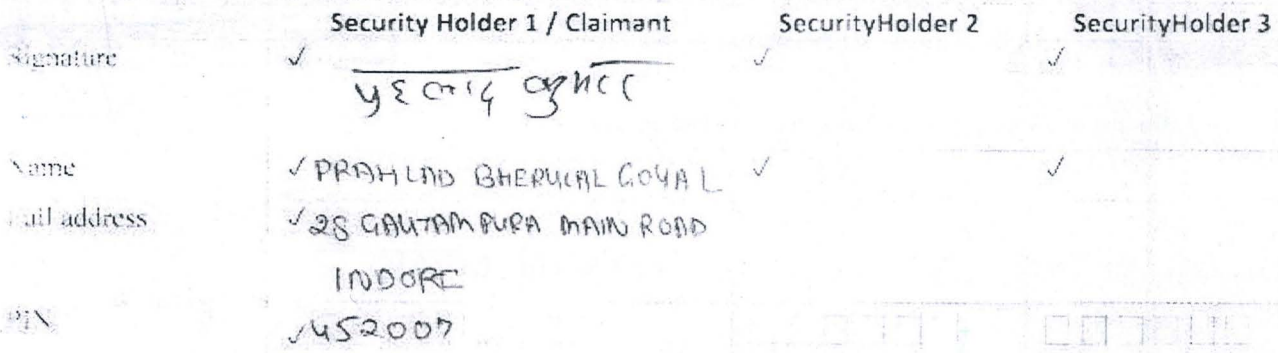 Security Holder 1 / Claimant SecurityHolder 2 SecurityHolder 3
Signature ✓ ✓ ✓
Name ✓ PRAHLAD BHERULAL GOYAL ✓ ✓
address ✓ 28 GAUTAMPURA MAIN ROAD
INDORE
PIN ✓ 452007